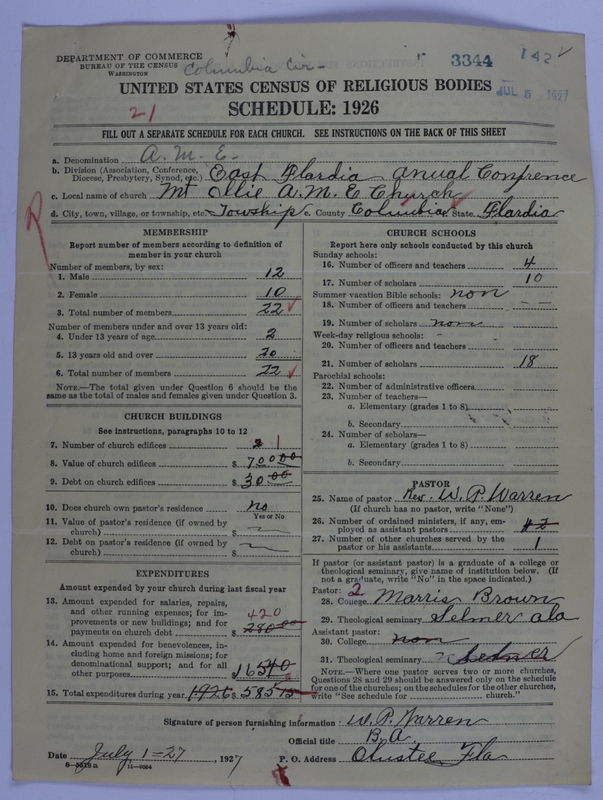 DEPARTMENT OF COMMERCE
BUREAU OF THE CENSUS
WASHINGTON
Columbia Cir-
3344
142
JUL 5 1927
UNITED STATES CENSUS OF RELIGIOUS BODIES
21
SCHEDULE: 1926
FILL OUT A SEPARATE SCHEDULE FOR EACH CHURCH. SEE INSTRUCTIONS ON THE BACK OF THIS SHEET
a. Denomination A. M. E.
b. Division (Association, Conference, Diocese, Presbytery, Synod, etc.) East Flardia Anual Confrence
c. Local name of church Mt Ollie A. M. E Church
d. City, town, village, or township, etc. Towship e. County Columbia State, Flardia
R
MEMBERSHIP
Report number of members according to definition of
member in your church
Number of members, by sex:
1. Male 12
2. Female 10
3. Total number of members 22
Number of members under and over 13 years old:
4. Under 13 years of age 2
5. 13 years old and over 20
6. Total number of members 22
NOTE.—The total given under Question 6 should be the
same as the total of males and females given under Question 3.
CHURCH BUILDINGS
See instructions, paragraphs 10 to 12
7. Number of church edifices 1
8. Value of church edifices $ 700 00
9. Debt on church edifices $ 30 00
10. Does church own pastor's residence? No
Yes or No
11. Value of pastor's residence (if owned by
church) $
12. Debt on pastor's residence (if owned by
church) $
EXPENDITURES
Amount expended by your church during last fiscal year
13. Amount expended for salaries, repairs,
and other running expenses; for im-
provements or new buildings; and for
payments on church debt $ 420
280 00
14. Amount expended for benevolences, in-
cluding home and foreign missions; for
denominational support; and for all
other purposes $ 165 40
15. Total expenditures during year 1926 $ 585 15
CHURCH SCHOOLS
Report here only schools conducted by this church
Sunday schools:
16. Number of officers and teachers 4
17. Number of scholars 10
Summer vacation Bible schools: non
18. Number of officers and teachers
19. Number of scholars non
Week-day religious schools:
20. Number of officers and teachers
21. Number of scholars 18
Parochial schools:
22. Number of administrative officers
23. Number of teachers—
a. Elementary (grades 1 to 8)
b. Secondary
24. Number of scholars—
a. Elementary (grades 1 to 8)
b. Secondary
PASTOR
25. Name of pastor Rev. W. P. Warren
(If church has no pastor, write "None")
26. Number of ordained ministers, if any, em-
ployed as assistant pastors
27. Number of other churches served by the
pastor or his assistants 1
If pastor (or assistant pastor) is a graduate of a college or
theological seminary, give name of institution below. (If
not a graduate, write "No" in the space indicated.)
Pastor: 2
28. College Marris Brown
29. Theological seminary Selmer ala
Assistant pastor:
30. College non
31. Theological seminary Selmer
NOTE.—Where one pastor serves two or more churches,
Questions 28 and 29 should be answered only on the schedule
for one of the churches; on the schedules for the other churches,
write "See schedule for church."
Signature of person furnishing information W. P. Warren
Official title B. A.
Date July 1-27, 1927 P. O. Address Olustee Fla
8-5518a 11-9054